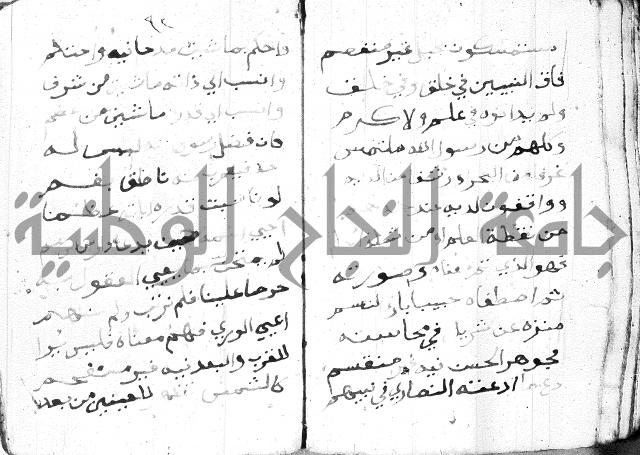 مستمسكون بحبل غير منفصم
فاق النبيين في خلق وفي خلق
ولم يدانوه في علم ولا كرم
وكلهم من رسول الله ملتمس
غرفا من البحر او رشفا من الديم
وواقفون لديه عند
من نقطة العلم او من
فهو الذي تم معناه وصورته
ثم اصطفاه حبيبا بارئ النسم
منزه عن شريك في محاسنه
فجوهر الحسن فيه غير منقسم
دع ما ادعته النصارى في نبيهم
٩٢
واحكم بما شئت مدحا فيه واحتكم
وانسب الى ذاته ما شئت من شرف
وانسب الى قدره ما شئت من عظم
فان فضل رسول الله ليس له
حد فيعرب عنه ناطق بفم
لو ناسبت قدره اياته عظما
احيى اسمه حين يدعا دارس
لم يمتحنا بما تعيى العقول به
حرصا علينا فلم نرتب ولم نهم
اعيى الورى فهم معناه فليس يرا
للقرب والبعد فيه غير منفحم
كالشمس تظهر للعينين من بعد
جامعة النجاح الوطنية